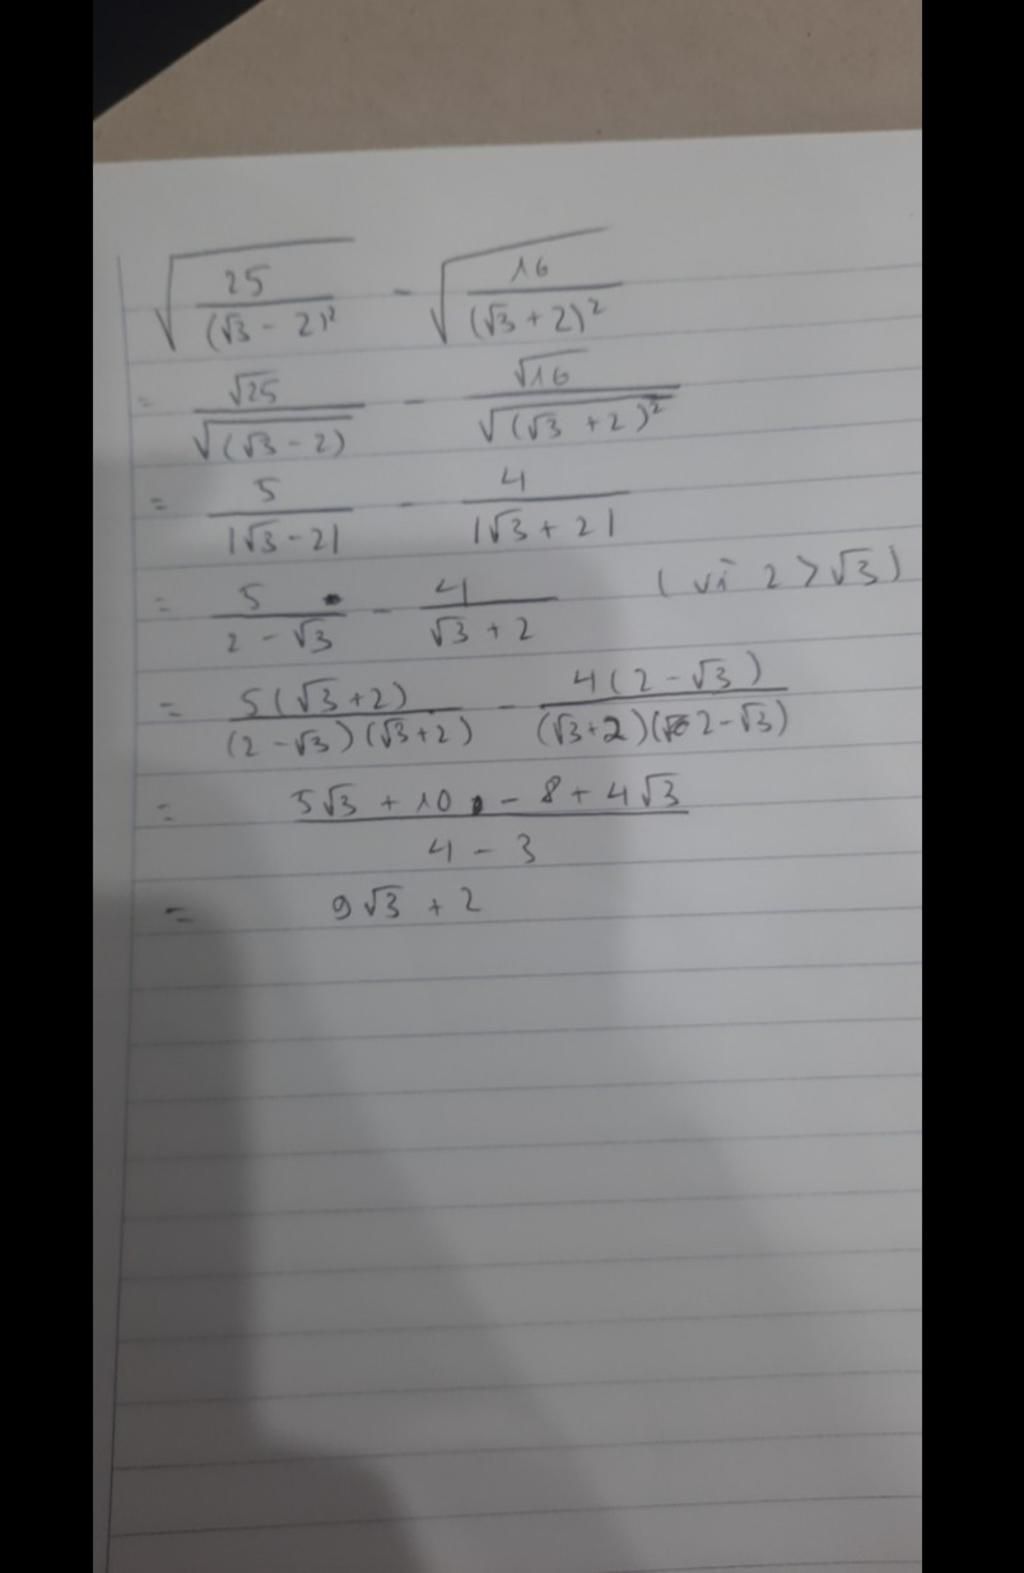 √(25/(√3 - 2)²) - √(16/(√3 + 2)²)
= √25/√((√3 - 2)) - √16/√((√3 + 2)²)
= 5/|√3 - 2| - 4/|√3 + 2|
= 5/(2 - √3) - 4/(√3 + 2) (vì 2 > √3)
= 5(√3 + 2)/((2 - √3)(√3 + 2)) - 4(2 - √3)/((√3 + 2)(2 - √3))
= (5√3 + 10 - 8 + 4√3)/(4 - 3)
= 9√3 + 2